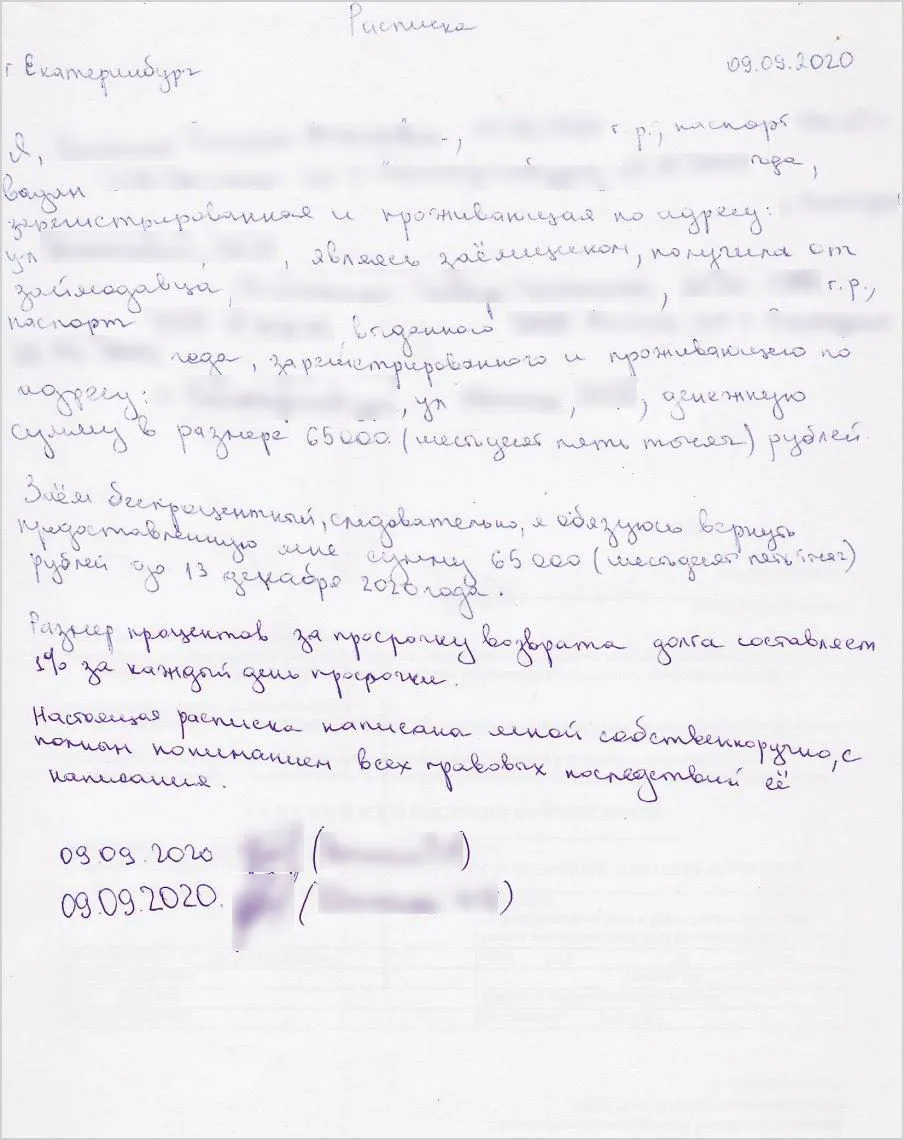 Расписка
г Екатеринбург 09.09.2020
Я, , г.р., паспорт
выдан года,
зарегистрированная и проживающая по адресу:
ул , являясь заёмщиком, получила от
займодавца, , г.р.,
паспорт , выданного
года, зарегистрированного и проживающего по
адресу: , ул , , денежную
сумму в размере 65000 (шестьдесят пять тысяч) рублей.
Заём беспроцентный, следовательно, я обязуюсь вернуть
предоставленную мне сумму 65000 (шестьдесят пять тысяч)
рублей до 13 декабря 2020 года.
Размер процентов за просрочку возврата долга составляет
1% за каждый день просрочки.
Настоящая расписка написана мной собственноручно, с
полным пониманием всех правовых последствий её
написания.
09.09.2020 ( )
09.09.2020. ( )